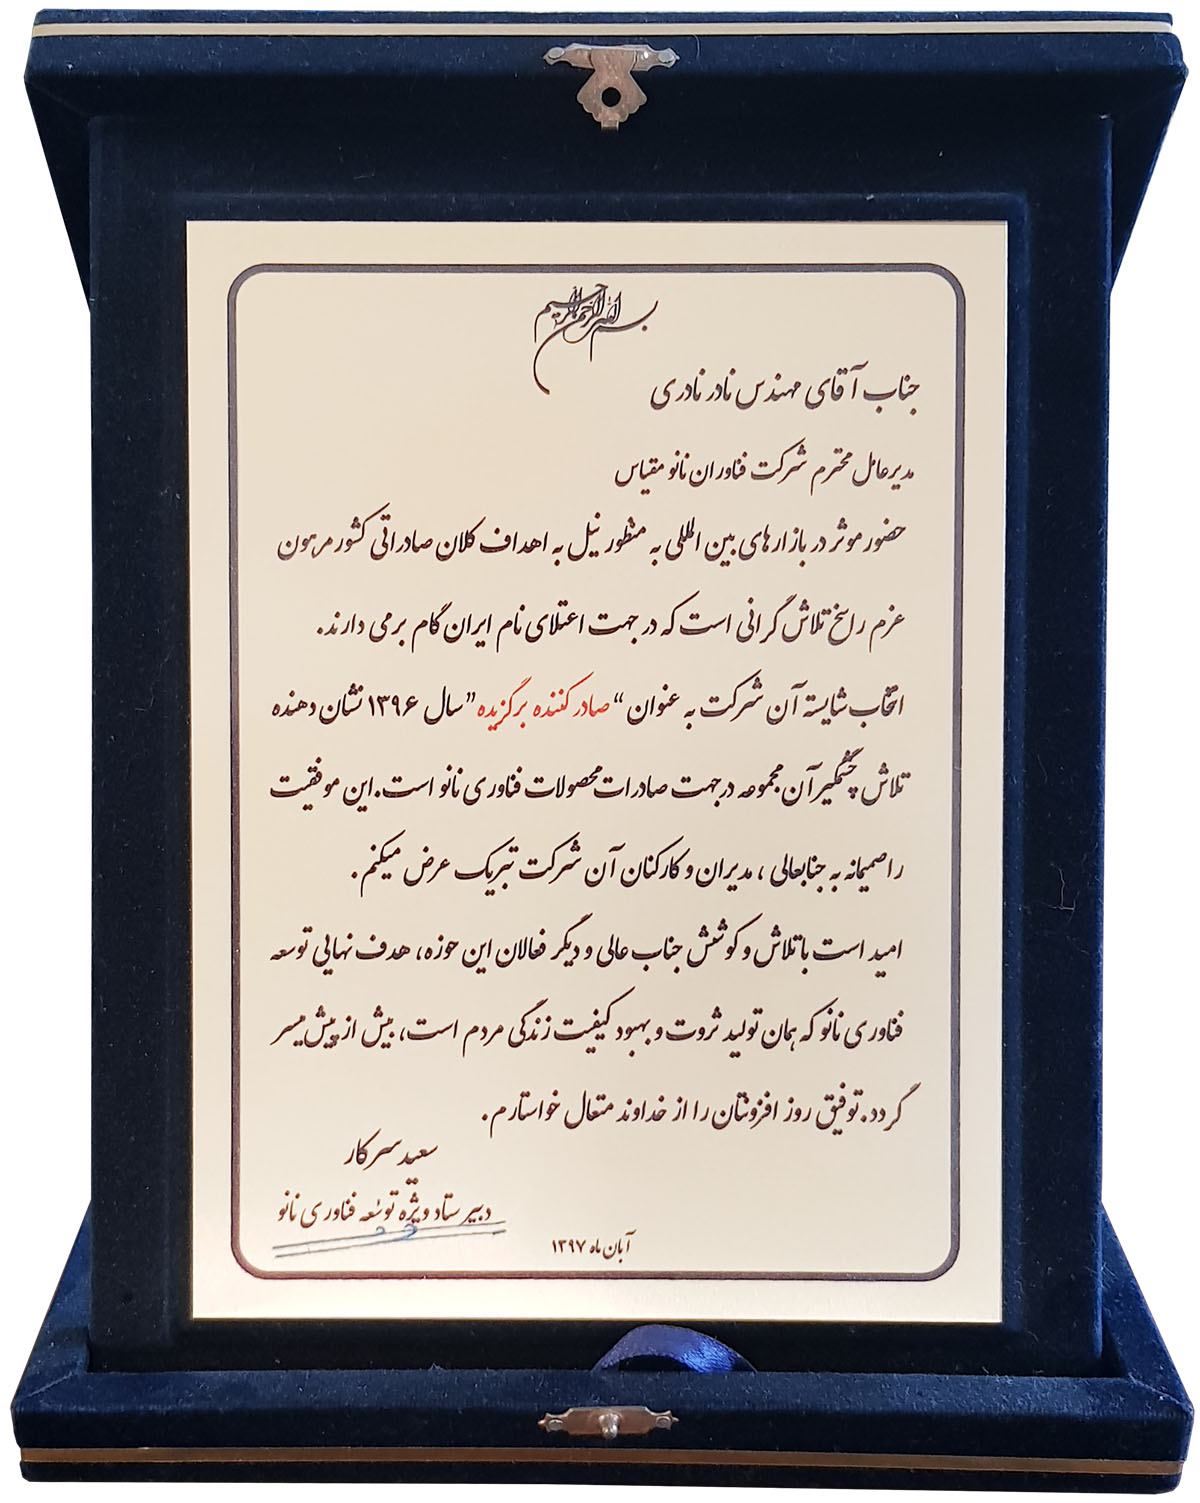 بسم الله الرحمن الرحیم
جناب آقای مهندس نادر نادری
مدیرعامل محترم شرکت فناوران نانو مقیاس
حضور موثر در بازارهای بین المللی به منظور نیل به اهداف کلان صادراتی کشور مرهون
عزم راسخ تلاش گرانی است که در جهت اعتلای نام ایران گام برمی دارند.
انتخاب شایسته آن شرکت به عنوان “صادر کننده برگزیده” سال ۱۳۹۶ نشان دهنده
تلاش چشمگیر آن مجموعه در جهت صادرات محصولات فناوری نانو است. این موفقیت
را صمیمانه به جنابعالی ، مدیران و کارکنان آن شرکت تبریک عرض میکنم.
امید است با تلاش و کوشش جناب عالی و دیگر فعالان این حوزه، هدف نهایی توسعه
فناوری نانو که همان تولید ثروت و بهبود کیفیت زندگی مردم است، بیش از پیش میسر
گردد. توفیق روز افزونتان را از خداوند متعال خواستارم.
سعید سرکار
دبیر ستاد ویژه توسعه فناوری نانو
آبان ماه ۱۳۹۷